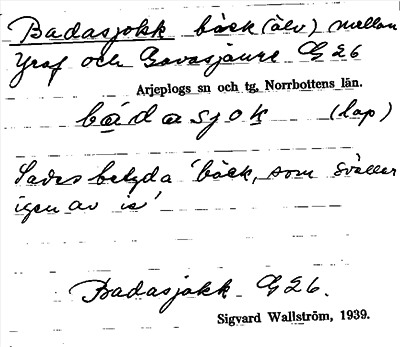 Badasjokk bäck (älv) mellan
Yraf och Gavasjaure G 26
Arjeplogs sn och tg. Norrbottens län.
bádasjok (lap)
Sades betyda 'bäck, som sväller
igen av is'
Badasjokk G 26.
Sigvard Wallström, 1939.